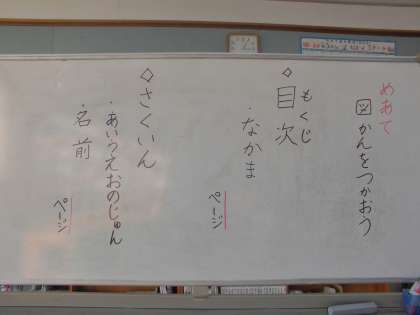 めあて
図かんをつかおう
もくじ
◇目次
・なかま
ページ
◇さくいん
・あいうえおのじゅん
・名前
ページ